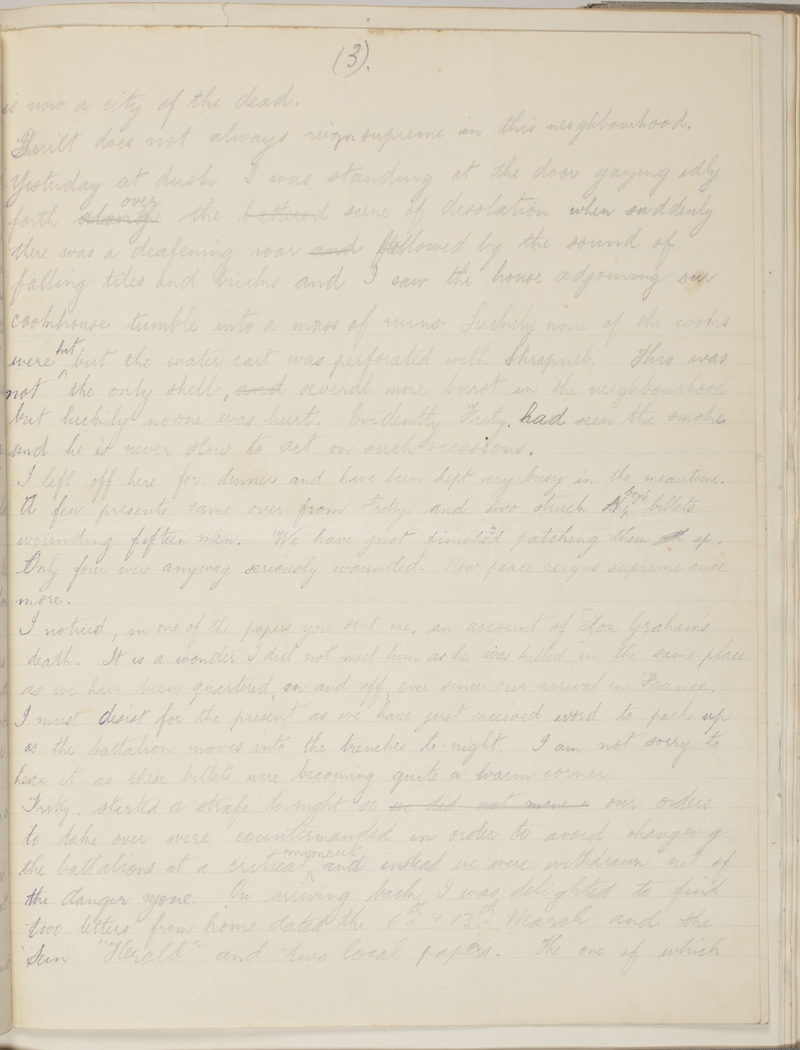 (3).
is now a city of the dead.
Quiet does not always reign supreme in this neighbourhood.
Yesterday at dusk I was standing at the door gazing idly
forth along over the battered scene of desolation when suddenly
there was a deafening roar and followed by the sound of
falling tiles and bricks and I saw the house adjoining our
cookhouse tumble into a mass of ruins. Luckily none of the cooks
were hit but the water cart was perforated with shrapnel. This was
not the only shell, and several more burst in the neighbourhood
but luckily no one was hurt. Evidently Fritz. had seen the smoke
and he is never slow to act on such occasions.
I left off here for dinner and have been kept very busy in the meantime.
A few presents came over from Fritz. and two struck boys' billets
wounding fifteen men. We have just finished patching them up.
Only four were anyway seriously wounded. Now peace reigns supreme once
more.
I noticed, in one of the papers you sent me, an account of Graham's
death. It is a wonder I did not meet him as he was killed in the same place
as we have been quartered, on and off, ever since our arrival in France.
I must desist for the present as we have just received word to pack up
as the battalion moves into the trenches to-night. I am not sorry to
hear it as these billets were becoming quite a warm corner
Fritz. started a strafe to-night so we did not move our orders
to take over were countermanded in order to avoid changing
the battalions at a critical moment and instead we were withdrawn out of
the danger zone. On arriving back I was delighted to find
two letters from home dated the 6th & 13th March and the
Sun "Herald" and two local papers. The one of which